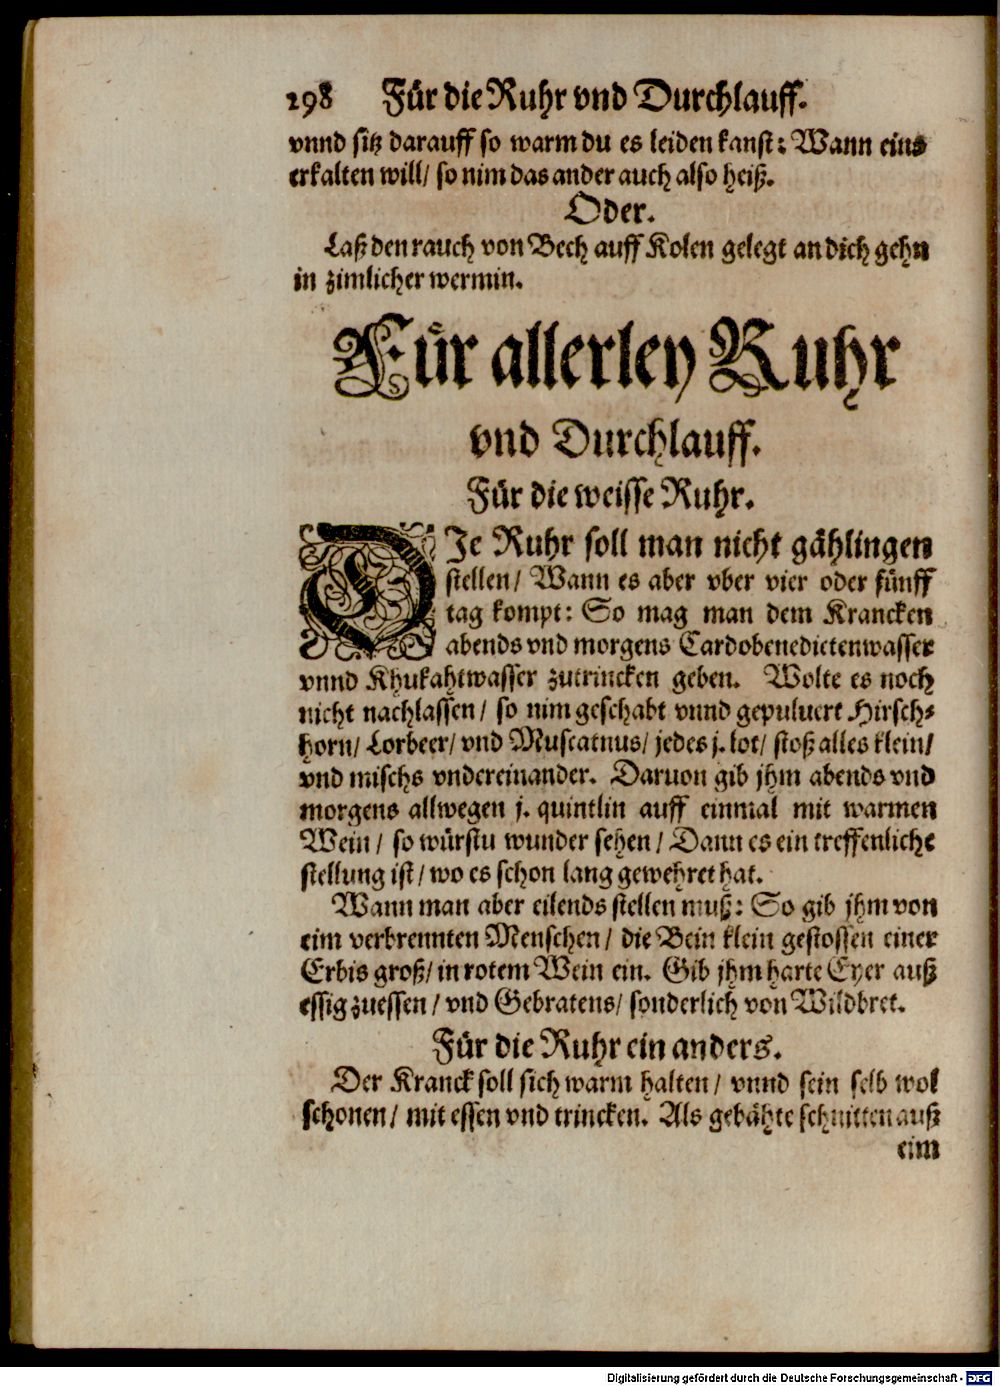 298 Für die Ruhr vnd Durchlauff.
vnnd sitz darauff so warm du es leiden kanst: Wann eins
erkalten will/ so nim das ander auch also heiß.
Oder.
Laß den rauch von Bech auff Kolen gelegt an dich gehn
in zimlicher wermin.
Für allerley Ruhr
vnd Durchlauff.
Für die weisse Ruhr.
DJe Ruhr soll man nicht gåhlingen
stellen/ Wann es aber vber vier oder fünff
tag kompt: So mag man dem Krancken
abends vnd morgens Cardobenedictenwasser
vnnd Khukahtwasser zutrincken geben. Wolte es noch
nicht nachlassen/ so nim geschabt vnnd gepuluert Hirsch-
horn/ Lorbeer/ vnd Muscatnus/ jedes j. lot/ stoß alles klein/
vnd mischs vndereinander. Daruon gib jhm abends vnd
morgens allwegen j. quintlin auff einmal mit warmen
Wein/ so würstu wunder sehen/ Dann es ein treffenliche
stellung ist/ wo es schon lang gewehret hat.
Wann man aber eilends stellen muß: So gib jhm von
eim verbrennten Menschen/ die Bein klein gestossen einer
Erbis groß/ in rotem Wein ein. Gib jhm harte Eyer auß
essig zuessen/ vnd Gebratens/ sonderlich von Wildbret.
Für die Ruhr ein anders.
Der Kranck soll sich warm halten/ vnnd sein selb wol
schonen/ mit essen vnd trincken. Als gebåhte schnitten auß
eim
Digitalisierung gefördert durch die Deutsche Forschungsgemeinschaft - DFG